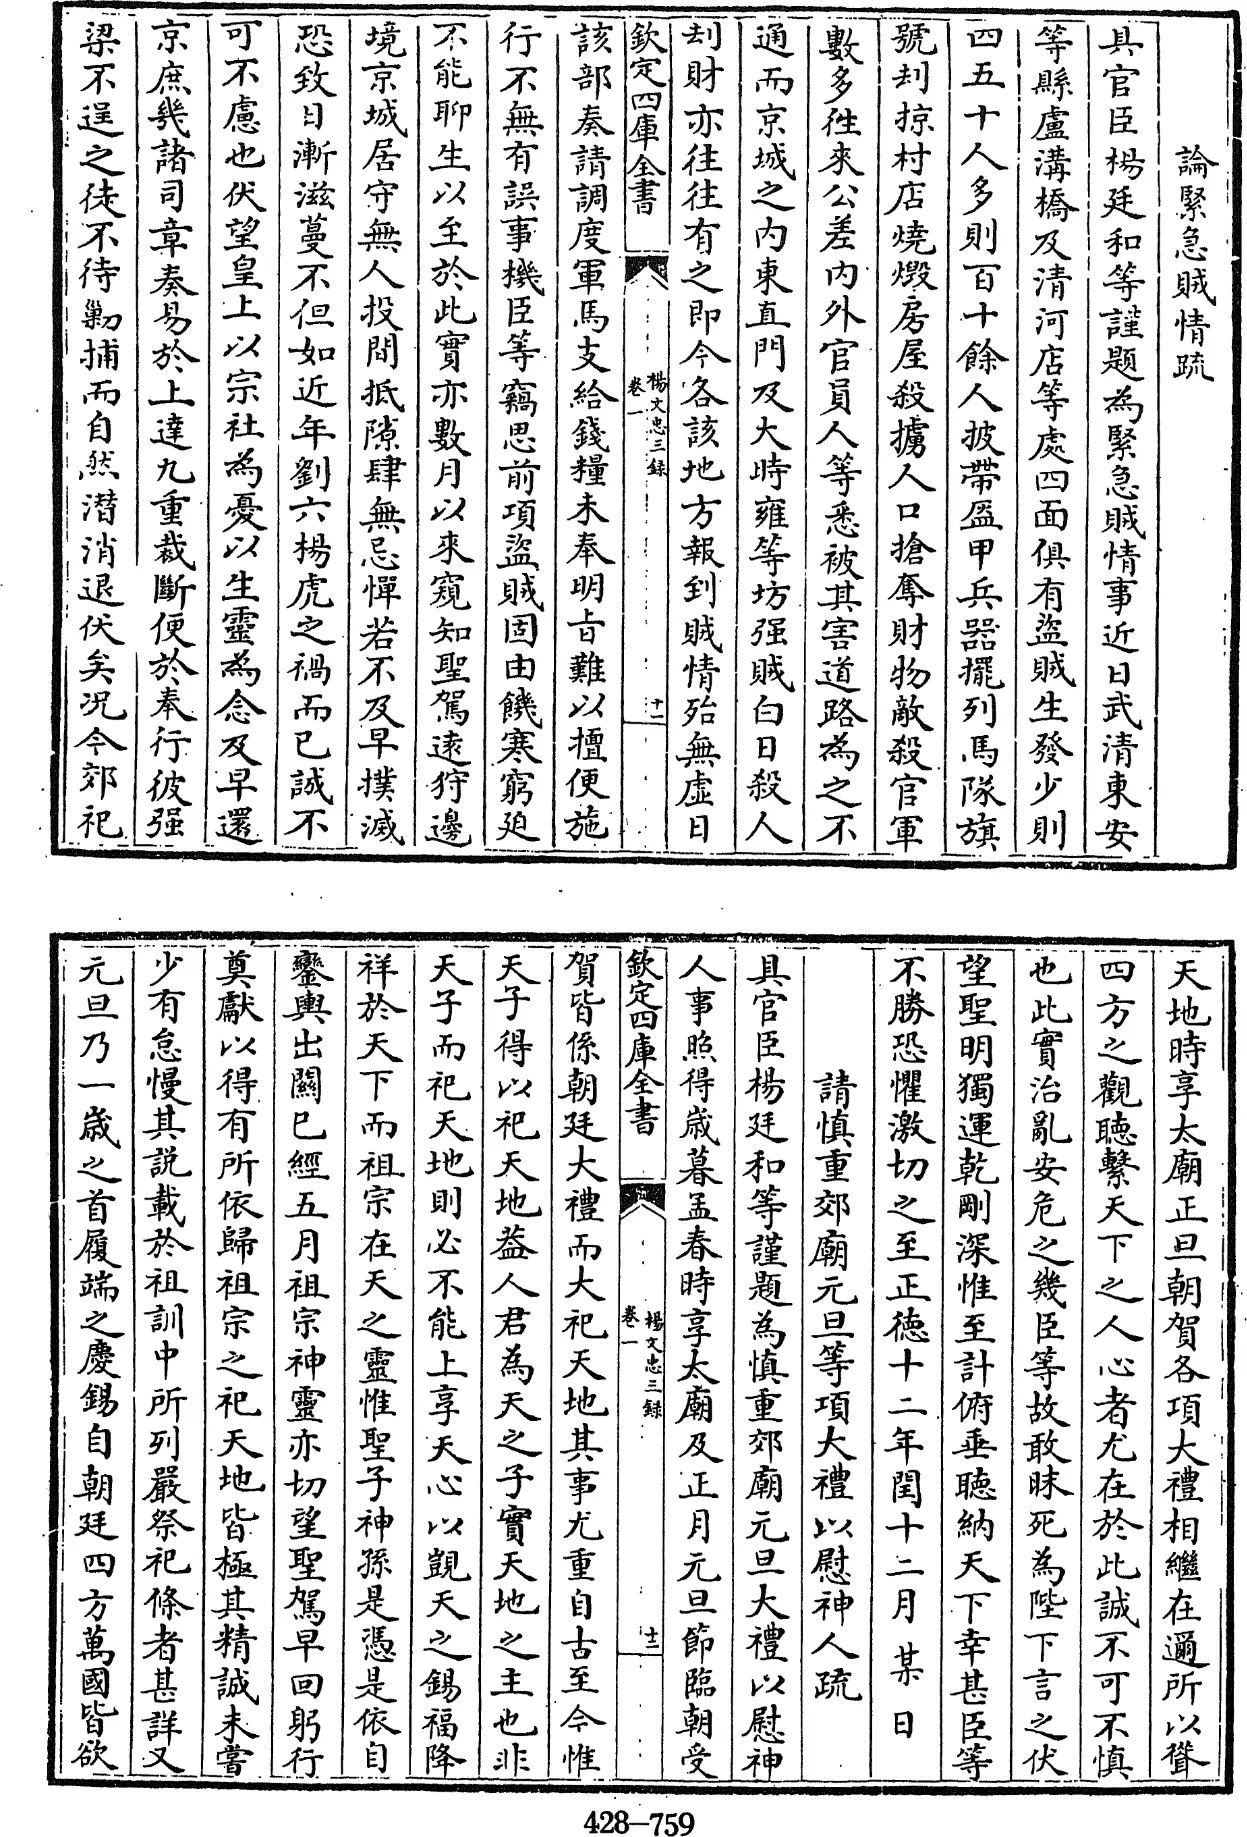 論緊急賊情疏
具官臣楊廷和等謹題為緊急賊情事近日武清東安
等縣盧溝橋及清河店等處四面俱有盜賊生發少則
四五十人多則百十餘人披帶盔甲兵器擺列馬隊旗
號刦掠村店燒燬房屋殺擄人口搶奪財物敵殺官軍
數多徃來公差内外官員人等悉被其害道路為之不
通而京城之内東直門及大時雍等坊强賊白日殺人
刦財亦往往有之即今各該地方報到賊情殆無虚日
欽定四庫全書
楊文忠三録
卷一
十一
該部奏請調度軍馬支給錢糧未奉明旨難以擅便施
行不無有誤事機臣等竊思前項盜賊固由饑寒窮廹
不能聊生以至於此實亦數月以來窺知聖駕遠狩邊
境京城居守無人投間抵隙肆無忌憚若不及早撲滅
恐致日漸滋蔓不但如近年劉六楊虎之禍而已誠不
可不慮也伏望皇上以宗社為憂以生靈為念及早還
京庶幾諸司章奏易於上達九重裁斷便於奉行彼强
梁不逞之徒不待勦捕而自然潛消退伏矣况今郊祀
天地時享太廟正旦朝賀各項大禮相繼在邇所以聳
四方之觀聽繫天下之人心者尤在於此誠不可不慎
也此實治亂安危之幾臣等故敢昧死為陛下言之伏
望聖明獨運乾剛深惟至計俯垂聽納天下幸甚臣等
不勝恐懼激切之至正德十二年閏十二月某日
請慎重郊廟元旦等項大禮以慰神人疏
具官臣楊廷和等謹題為慎重郊廟元旦大禮以慰神
人事照得歳暮孟春時享太廟及正月元旦節臨朝受
欽定四庫全書
楊文忠三録
卷一
十二
賀皆係朝廷大禮而大祀天地其事尤重自古至今惟
天子得以祀天地葢人君為天之子實天地之主也非
天子而祀天地則必不能上享天心以覬天之錫福降
祥於天下而祖宗在天之靈惟聖子神孫是憑是依自
鑾輿出關已經五月祖宗神靈亦切望聖駕早回躬行
奠獻以得有所依歸祖宗之祀天地皆極其精誠未嘗
少有怠慢其説載於祖訓中所列嚴祭祀條者甚詳又
元旦乃一歳之首履端之慶錫自朝廷四方萬國皆欲
428-759